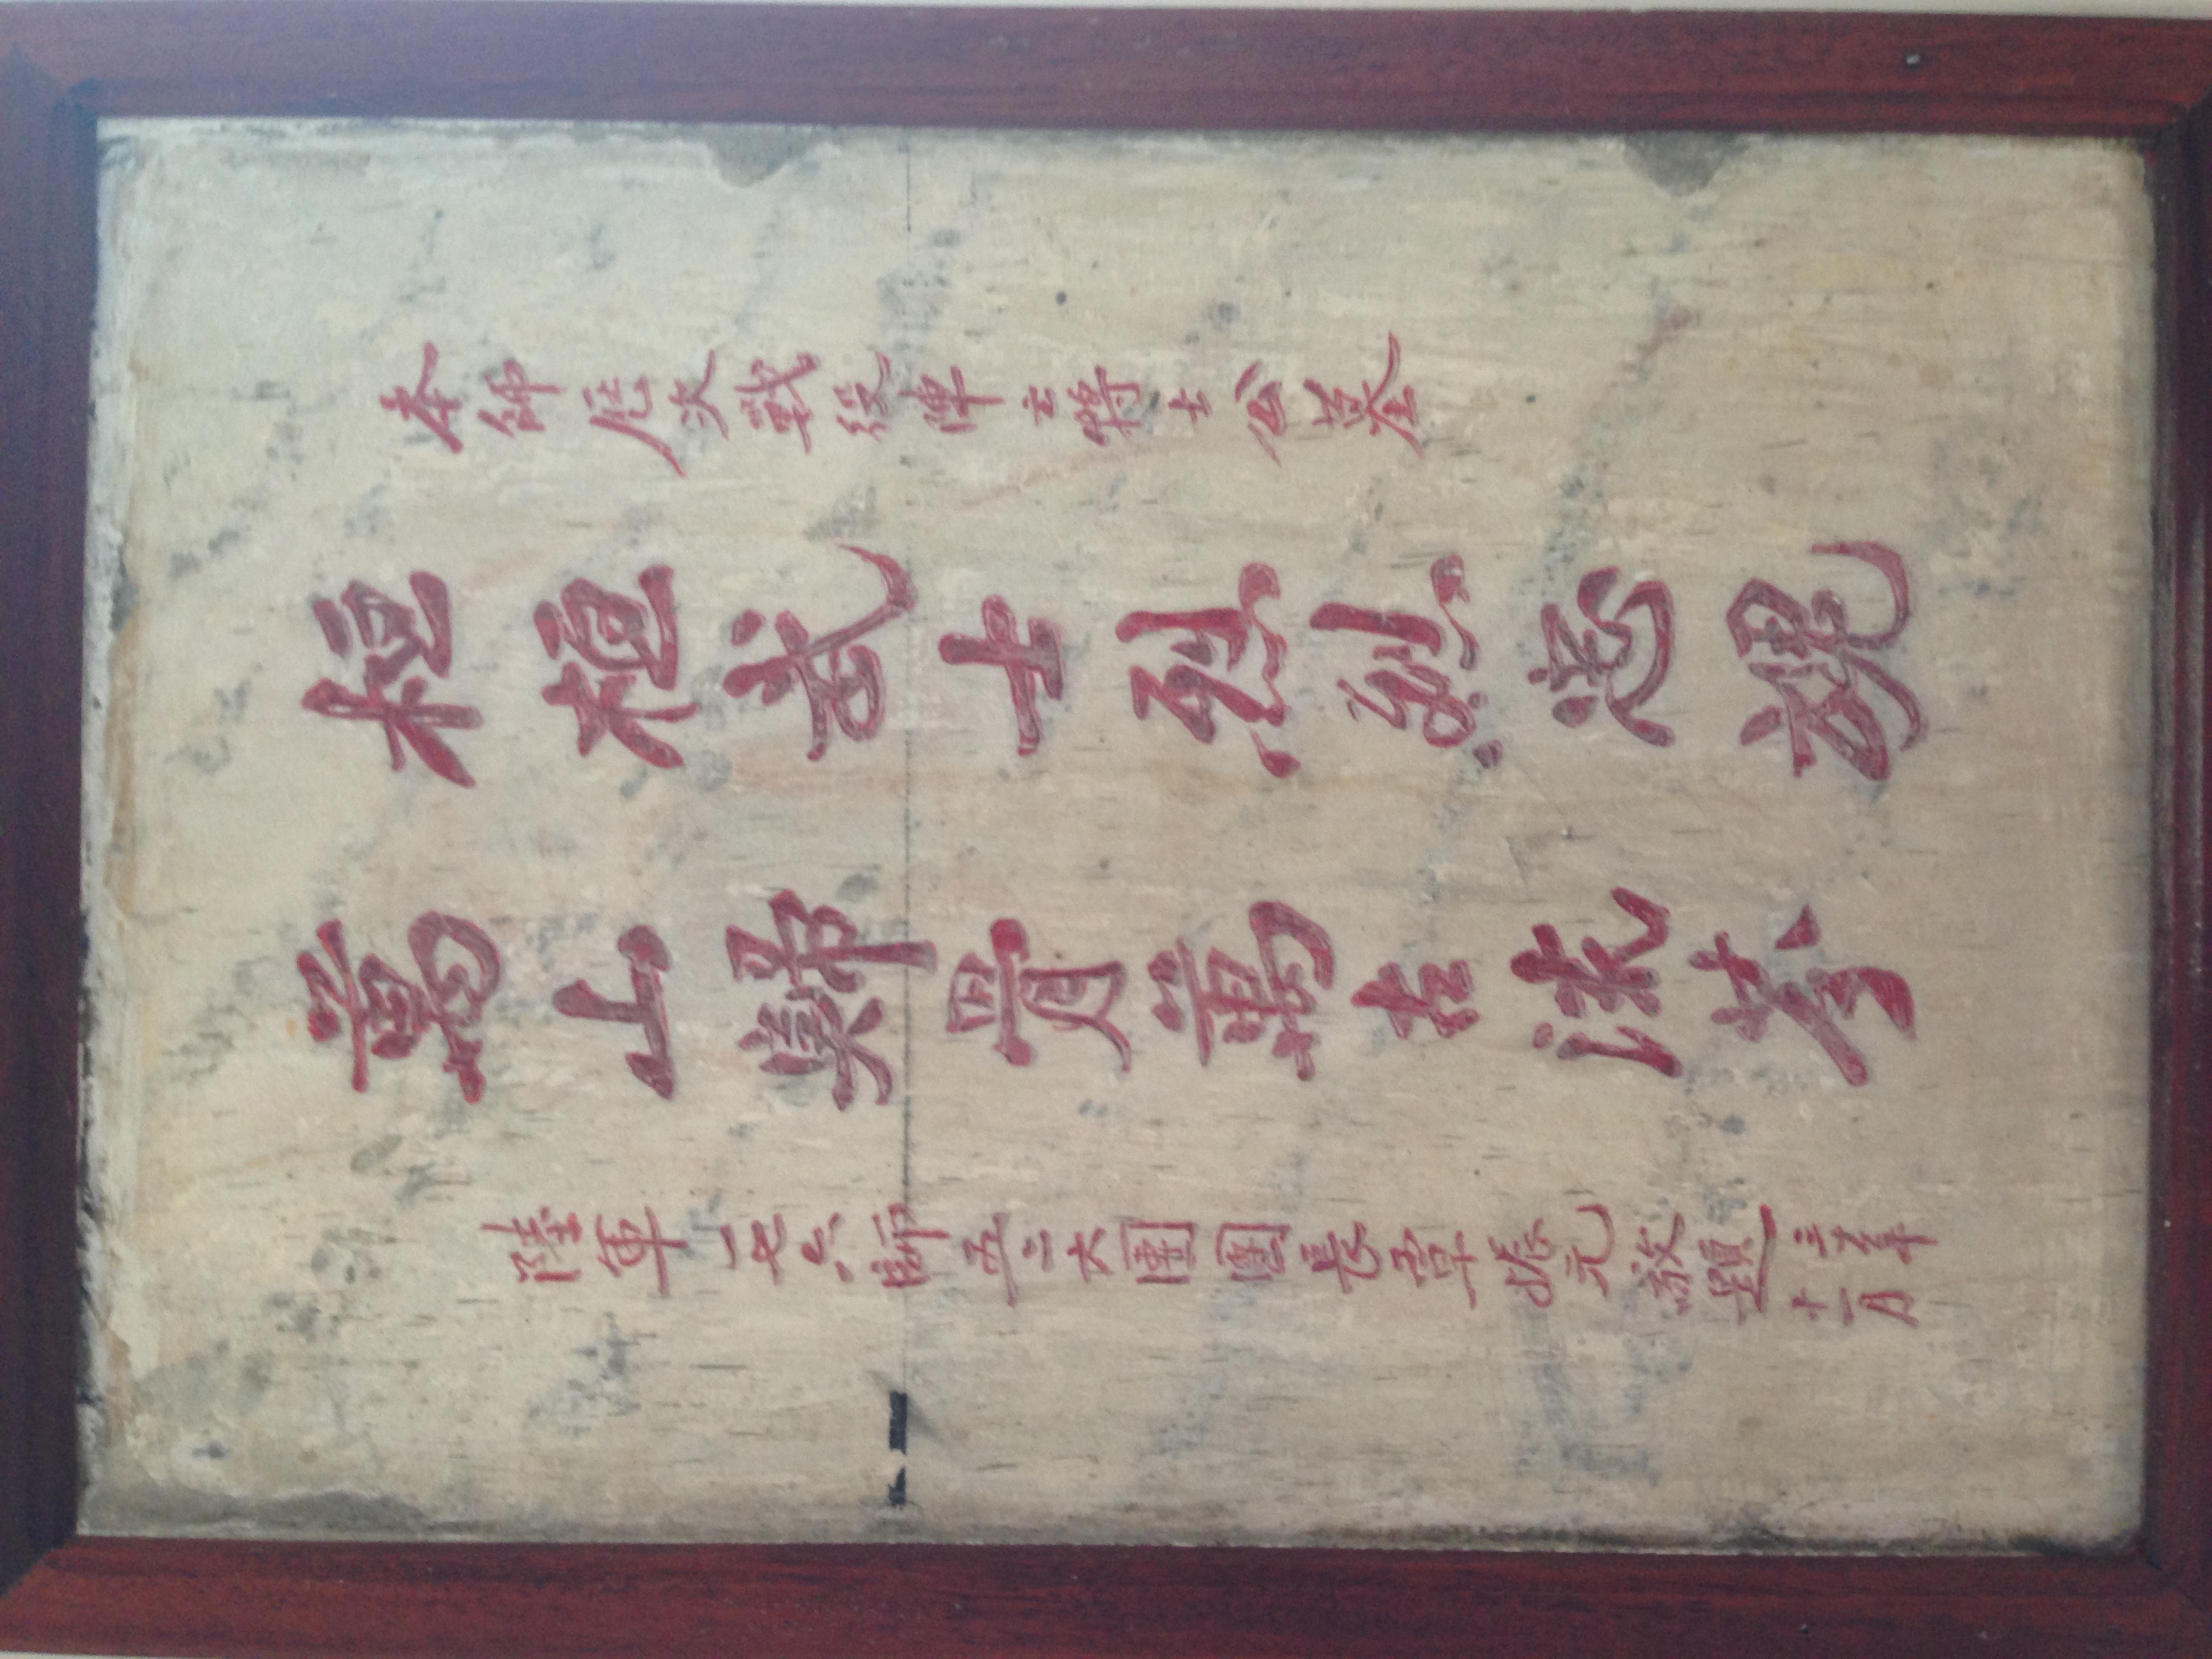 本師历次戰役陣亡將士公墓
桓桓武士烈烈忠魂
萬山歸骨萬古流芬
陸軍一七六師五二六團團長覃振元敬題
十一月